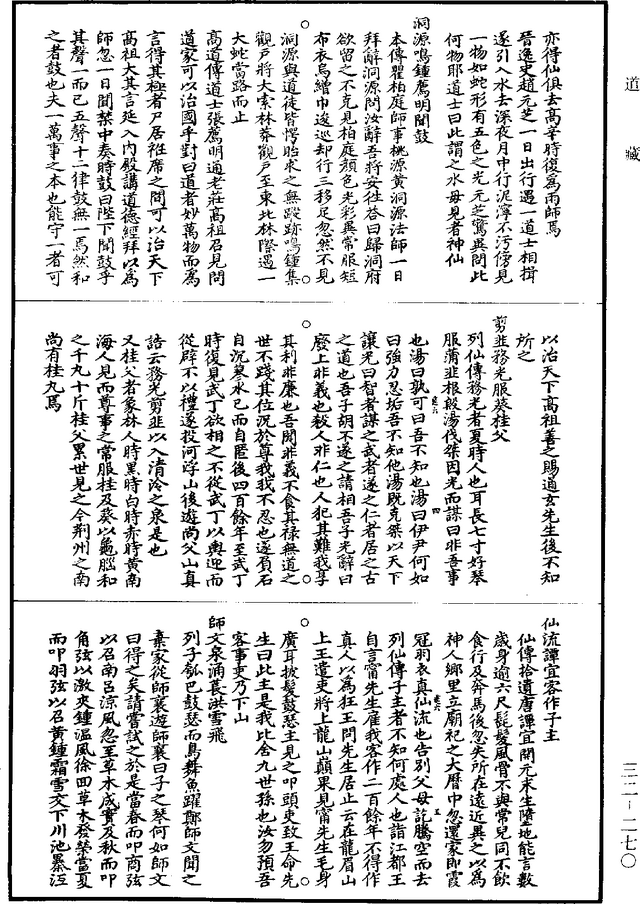 道藏
亦得仙俱去高辛時復爲雨師焉
晉逸史趙元芝一日出行遇一道士相揖
遂引入水去深夜月中行泥濘不污傍見
一物如蛇形有五色之光元芝驚異問此
何物耶道士曰此謂之水母見者神仙
洞源鳴鍾薦明聞鼓
本傳瞿柏庭師事桃源黃洞源法師一日
拜辭洞源問汝辭吾將安往荅曰歸洞府
欲留之不克見柏庭顏色光彩異常服短
布衣烏繒巾逡巡却行三移足忽然不見
洞源與道徒皆愕眙求之無蹤跡鳴鍾集
觀戶將大索林莽觀戶至東北林際遇一
大蛇當路而止
高道傳道士張薦明通老莊高祖召見問
道家可以治國乎對曰道者妙萬物而爲
言得其極者尸居袵席之間可以治天下
高祖大其言延入內殿講道德經拜以爲
師忽一日聞禁中奏時鼓曰陛下聞鼓乎
其聲一而已五聲十二律鼓無一焉然和
之者鼓也夫一萬事之本也能守一者可
以治天下高祖善之賜通玄先生後不知
所之
剪韭務光服葵桂父
列仙傳務光者夏時人也耳長七寸好琴
服蒲韭根殷湯伐桀因光而謀曰非吾事
也湯曰孰可曰吾不知也湯曰伊尹何如
曰強力忍垢吾不知他湯既克桀以天下
讓光曰智者謀之武者遂之仁者居之古
之道也吾子胡不遂之請相吾子光辭曰
廢上非義也殺人非仁也人犯其難我享
其利非廉也吾聞非義不食其祿無道之
世不踐其位況於尊我我不忍也遂負石
自沉蓼水已而自匿後四百餘年至武丁
時復見武丁欲相之不從武丁以輿迎而
從辟不以禮遂投河浮山後遊尚父山真
誥云務光剪韭以入清泠之泉是也
又桂父者象林人時黑時白時赤時黃南
海人見而尊事之常服桂及葵以龜腦和
之千丸十斤桂父累世見之今荆州之南
尚有桂丸焉
仙流譚宜客作子主
仙傳拾遺唐譚宜開元末生墮地能言數
歲身逾六尺髭髮風骨不與常兒同不飲
食行及奔馬後忽失所在遠近異之以爲
神人鄉里立廟祀之大曆中忽還家即霞
冠羽衣真仙流也告別父母訖騰空而去
列仙傳子主者不知何處人也詣江都王
自言甯先生雇我客作二百餘年不得作
真人以爲狂王問先生居止云在龍眉山
上王遣吏將上龍山巔果見甯先生毛身
廣耳披髮鼓瑟主見之叩頭吏致王命先
生曰此主是我比舍九世孫也汝勿預吾
客事吏乃下山
師文泉涌裴洪雪飛
列子瓠巴鼓瑟而鳥舞魚躍鄭師文聞之
棄家從師襄遊師襄曰子之琴何如師文
曰得之矣請嘗試之於是當春而叩商弦
以召南呂涼風忽至草木成實及秋而叩
角弦以激夾鍾溫風徐回草木發榮當夏
而叩羽弦以召黃鍾霜雪交下川池暴沍
三二—二七〇